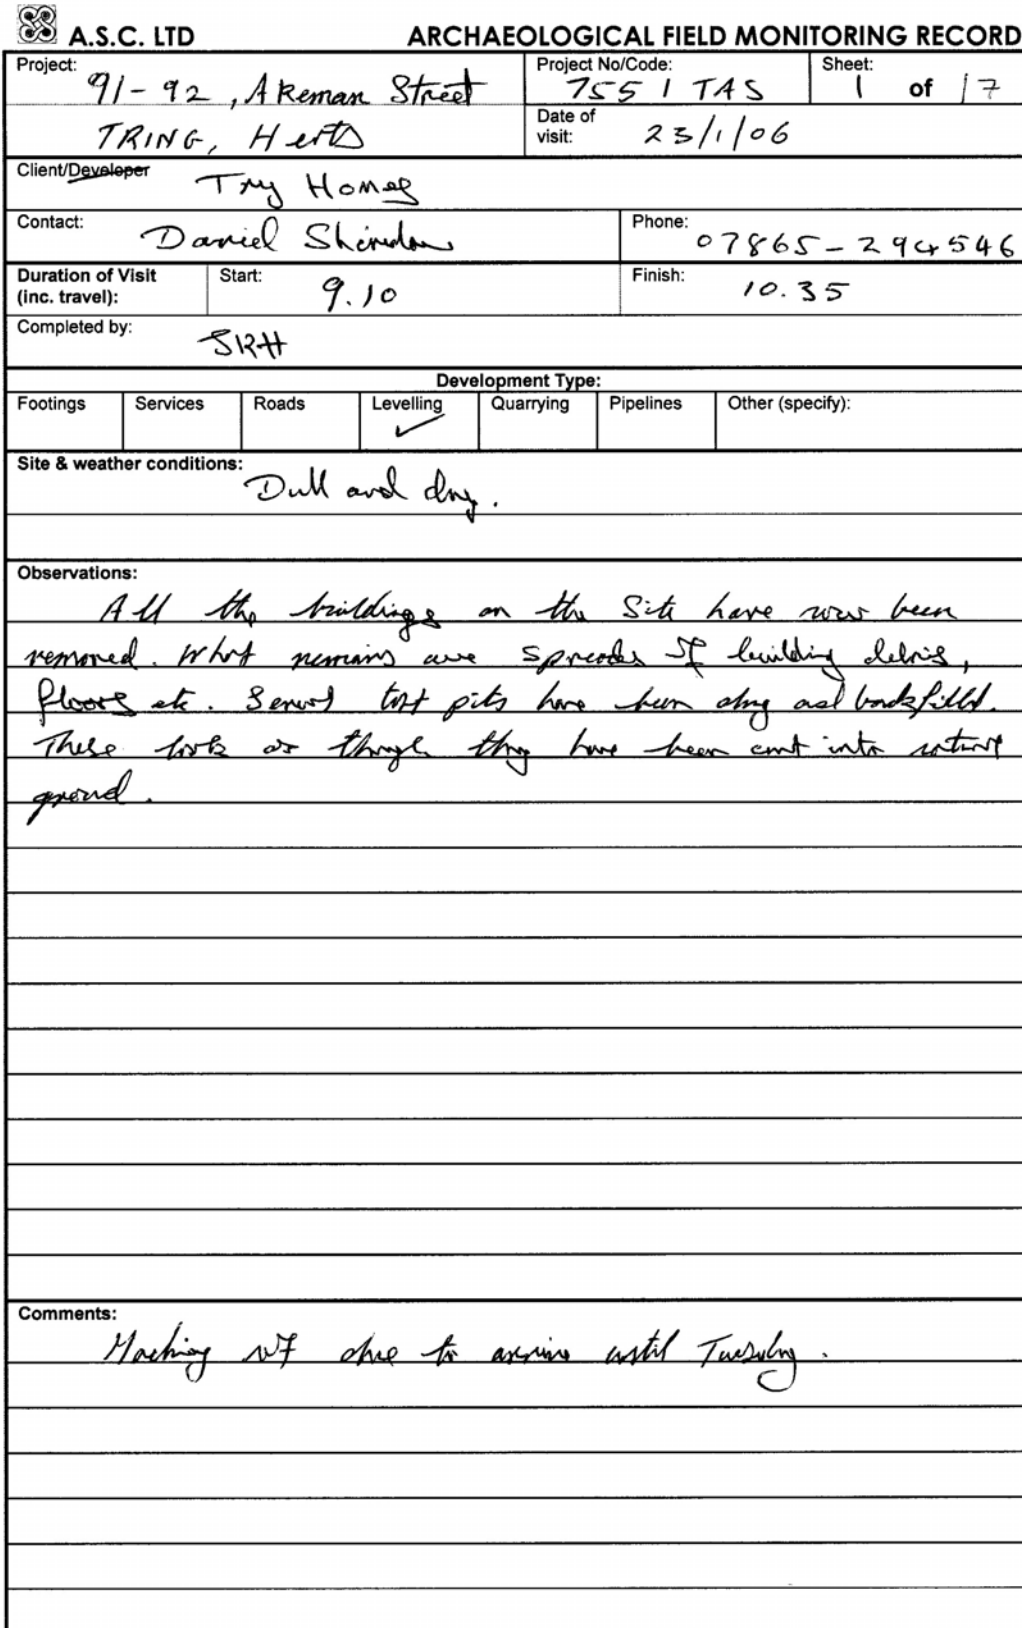 A.S.C. LTD ARCHAEOLOGICAL FIELD MONITORING RECORD
Project: 91-92, Akeman Street
TRING, Herts
Project No/Code: 755 / TAS
Sheet: 1 of 17
Date of visit: 23/1/06
Client/Developer Try Homes
Contact: Daniel Sheridan
Phone: 07865-294546
Duration of Visit (inc. travel):
Start: 9.10
Finish: 10.35
Completed by:
Development Type:
Footings Services Roads Levelling ✓ Quarrying Pipelines Other (specify):
Site & weather conditions: Dull and dry.
Observations:
All the buildings on the Site have now been
removed. What remains are spreads of building debris,
floors etc. Several test pits have been dug and backfilled.
These look as though they have been cut into natural
ground.
Comments:
Machine not due to arrive until Tuesday.